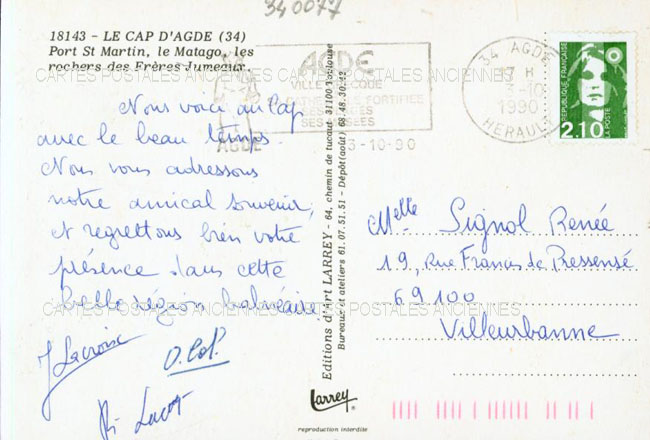 340077
18143 - LE CAP D'AGDE (34)
Port St Martin, le Matago, les
rochers des Frères Jumeaux.
CARTES POSTALES ANCIENNES
Nous voici au Cap
avec le beau temps.
Nous vous adressons
notre amical souvenir,
et regrettons bien votre
présence dans cette
belle région balnéaire
CARTES POSTALES ANCIENNES
J Lacroix
AGDE
VILLE
AGDE
3-10-90
34 AGDE
17 H
3-10
1990
HERAULT
REPUBLIQUE FRANÇAISE
2,10
LA POSTE
Editions d'Art LARREY - 64, chemin de tucaut 31100 Toulouse
Bureaux et ateliers 61.07.51.51 - Dépôt (août) 68.48.30.12
Larrey
reproduction interdite
Melle Signol Renée
19, Rue Francis de Pressensé
69100
Villeurbanne